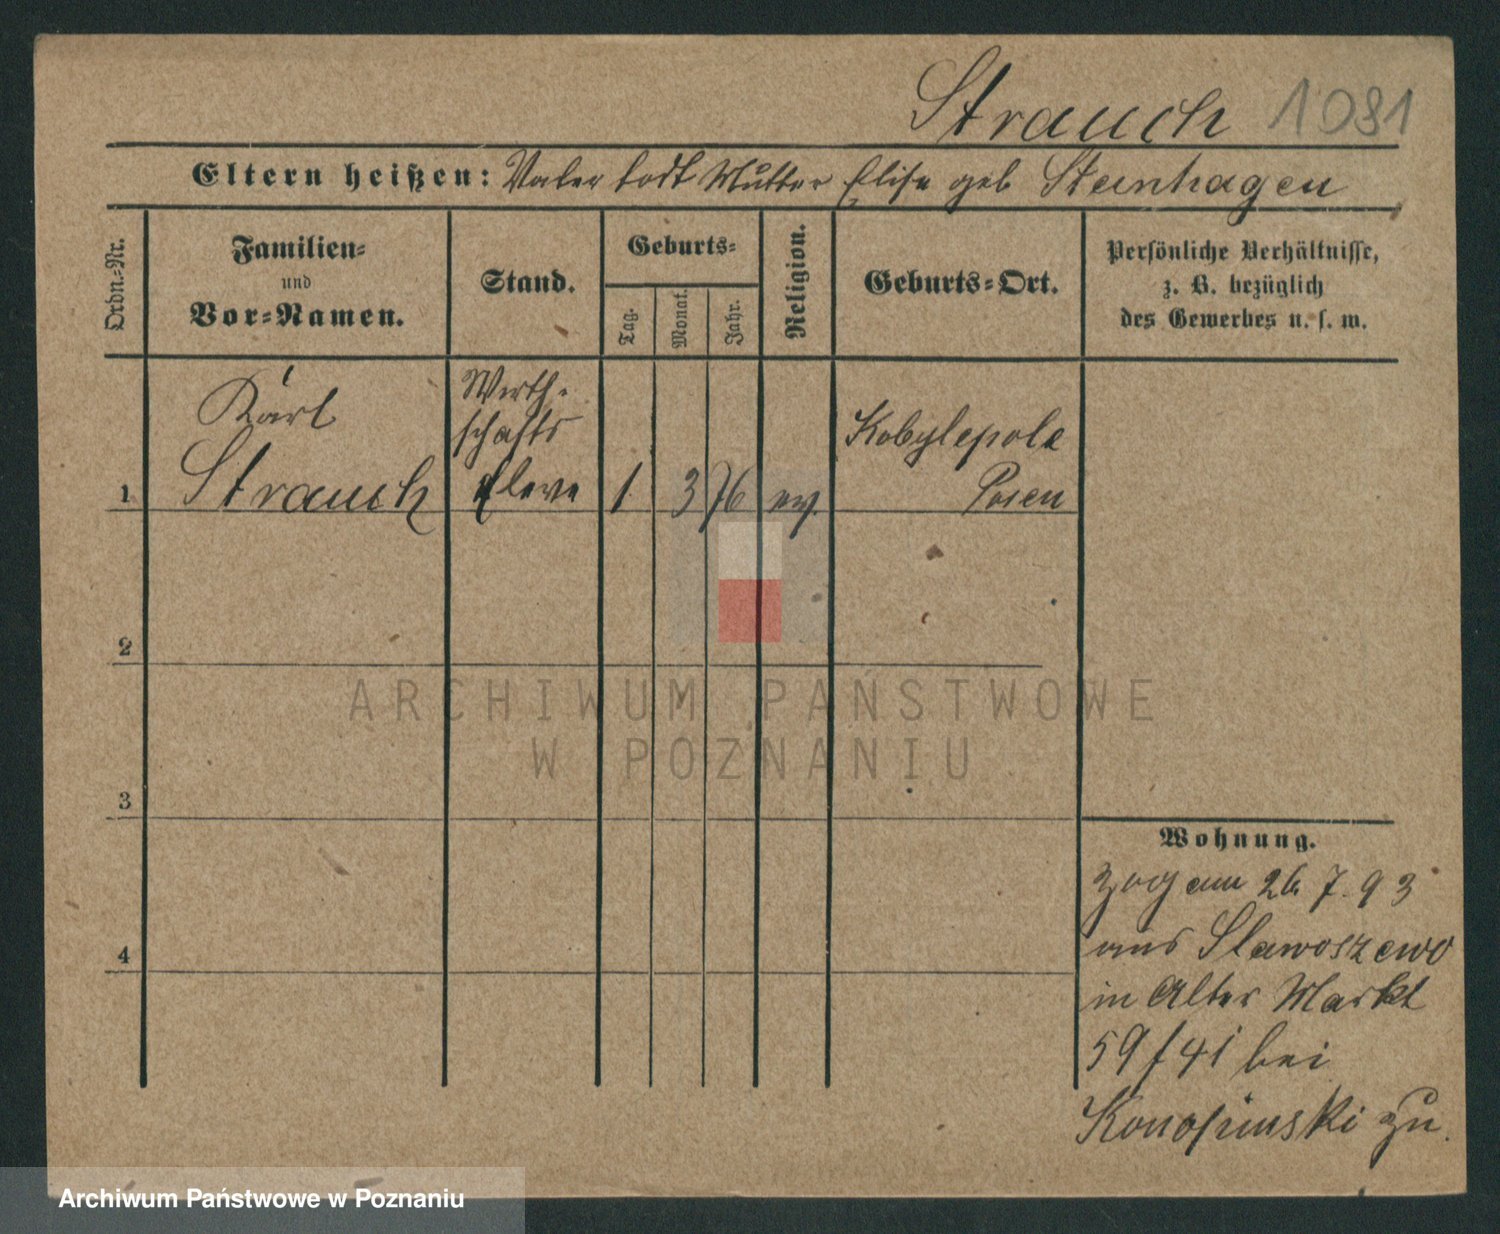 Strauch 1081
Eltern heißen: Vater todt Mutter Elise geb Steinhagen
Ordn.-Nr.
Familien-
und
Vor-Namen.
Stand.
Geburts-
Tag.
Monat.
Jahr.
Religion.
Geburts-Ort.
Persönliche Verhältnisse,
z. B. bezüglich
des Gewerbes u. s. w.
Karl
Strauch
Wirth-
schafts
Eleve
1 1. 3 76 ev.
Kobylepole
Posen
2
3
4
Wohnung.
zog am 26 7. 93
aus Slawoszewo
in Alter Markt
59/41 bei
zu.
ARCHIWUM PAŃSTWOWE
W POZNANIU
Archiwum Państwowe w Poznaniu